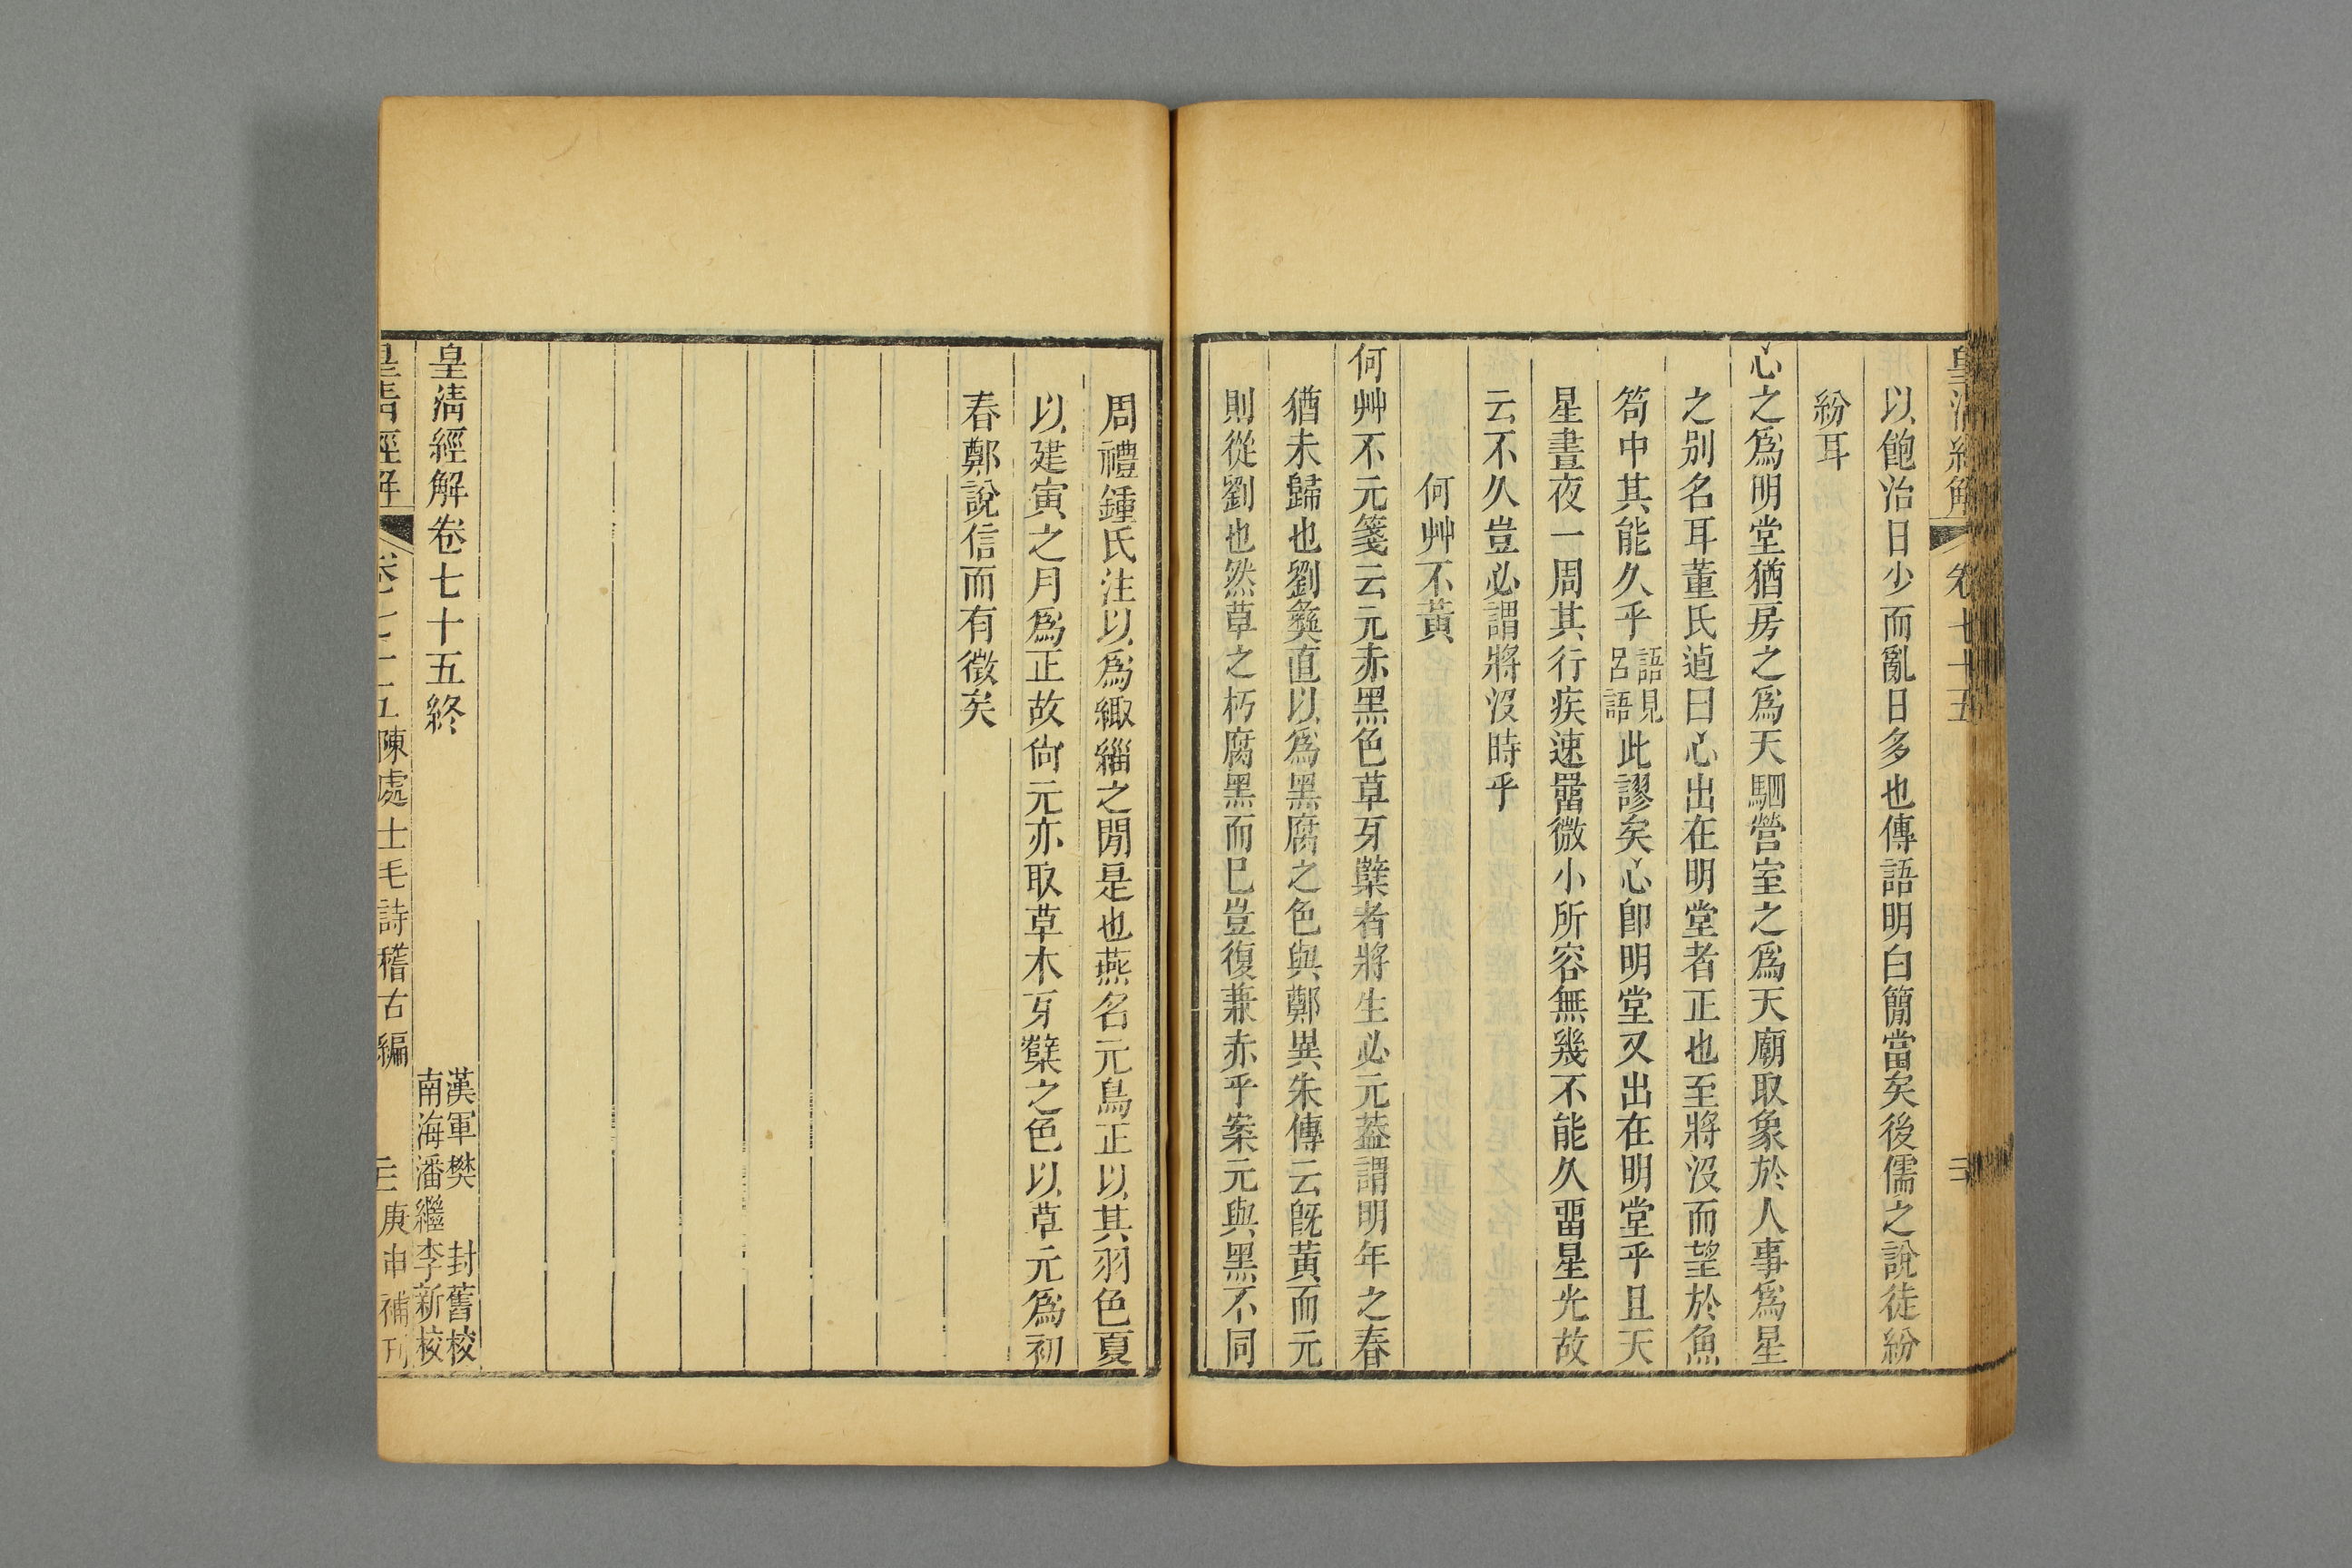 皇清經解 卷七十五 三
以飽治日少而亂日多也傳語明白簡當矣後儒之說徒紛
紛耳
心之爲明堂猶房之爲天駟營室之爲天廟取象於人事爲星
之別名耳董氏逌曰心出在明堂者正也至將沒而望於魚
笱中其能久乎語見呂語此謬矣心卽明堂又出在明堂乎且天
星晝夜一周其行疾速罶微小所容無幾不能久畱星光故
云不久豈必謂將沒時乎
何艸不黃
何艸不元箋云元赤黑色草牙櫱者將生必元葢謂明年之春
猶未歸也劉彝直以爲黑腐之色與鄭異朱傳云旣黃而元
則從劉也然草之朽腐黑而已豈復兼赤乎案元與黑不同
周禮鍾氏注以爲緅緇之閒是也燕名元鳥正以其羽色夏
以建寅之月爲正故尙元亦取草木牙櫱之色以草元爲初
春鄭說信而有徵矣
皇清經解卷七十五終
漢軍樊封舊校
南海潘繼李新校
皇清經解 卷七十五 陳處士毛詩稽古編 三 庚申補刊